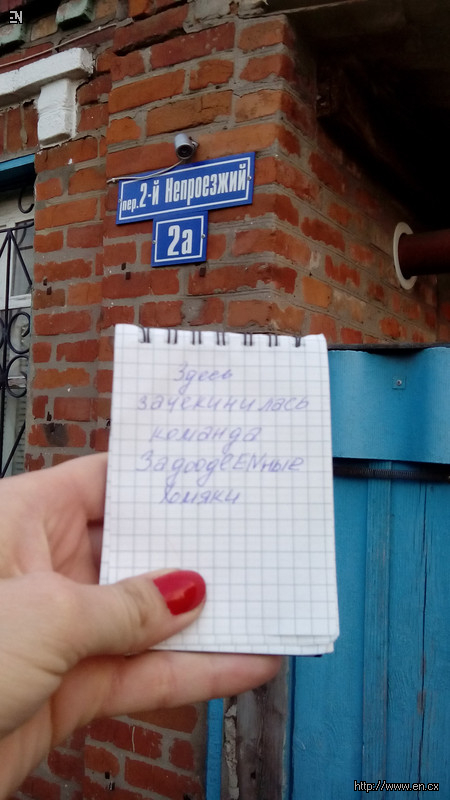 EN
пер. 2-й Непроезжий
2а
Здесь
зачекинилась
команда
ЗадоодеENные
хомяки
http://www.en.cx